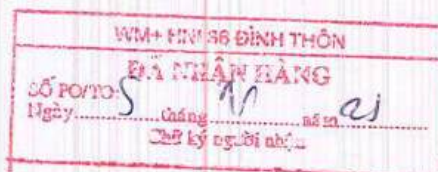 WM+ HNI 36 ĐÌNH THÔN
ĐÃ NHẬN HÀNG
SỐ PO/TO:
Ngày 5 tháng năm 21
Chữ ký người nhận